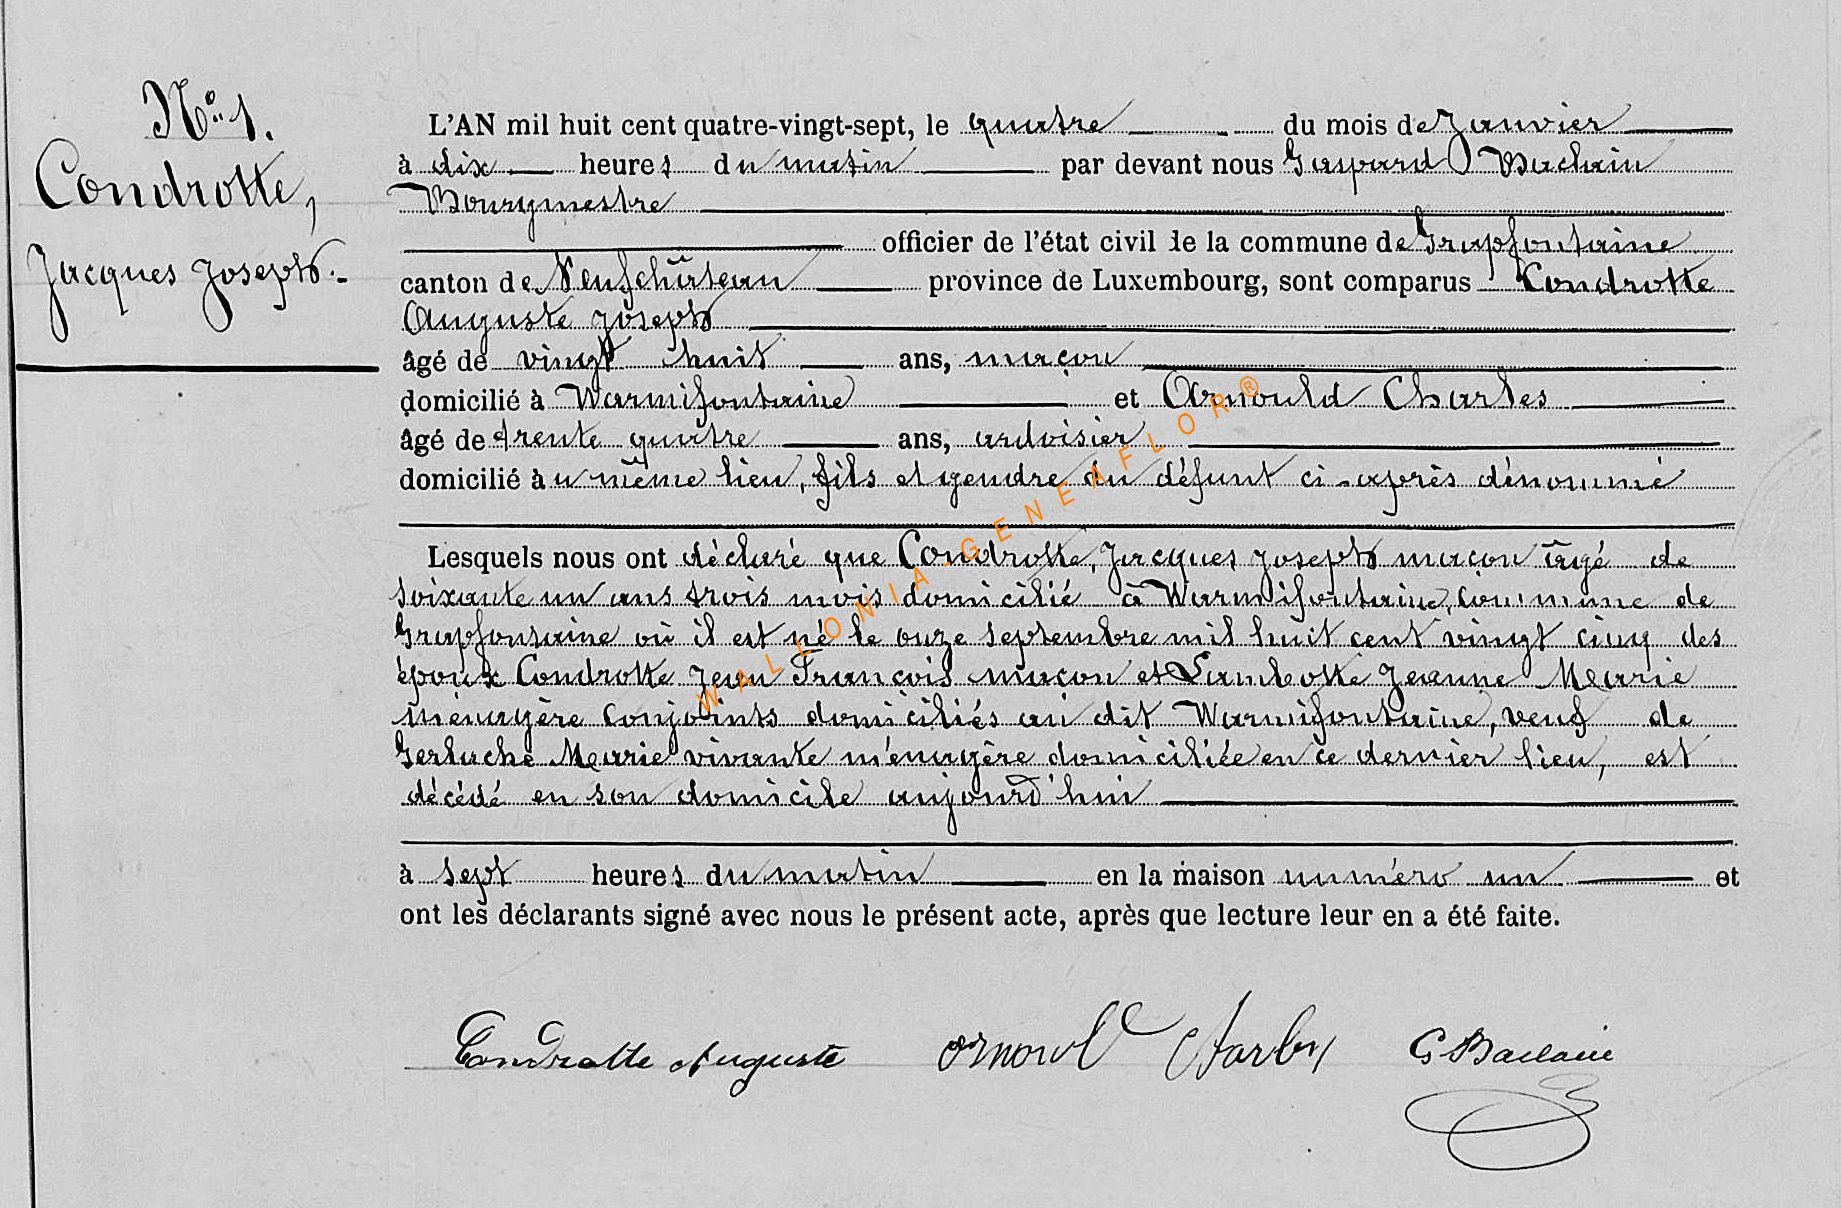 N° 1.
Condrotte,
Jacques Joseph.-
L'AN mil huit cent quatre-vingt-sept, le quatre du mois de Janvier
à dix heures du matin par devant nous Gaspard Buchain
Bourgmestre
officier de l'état civil de la commune de Grapfontaine
canton de Neufchâteau province de Luxembourg, sont comparus Condrotte
Auguste Joseph
âgé de vingt huit ans, maçon
domicilié à Warmifontaine et Arnould Charles
âgé de trente quatre ans, ardoisier
domicilié au même lieu, fils et gendre du défunt ci-après dénommé
Lesquels nous ont déclaré que Condrotte, Jacques Joseph maçon âgé de
soixante un ans trois mois domicilié à Warmifontaine, commune de
Grapfontaine où il est né le onze septembre mil huit cent vingt cinq des
époux Condrotte Jean François maçon et Lambotte Jeanne Marie
ménagère conjoints domiciliés au dit Warmifontaine, veuf de
Gerlache Marie vivante ménagère domiciliée en ce dernier lieu, est
décédé en son domicile aujourd'hui
à sept heures du matin en la maison numéro un et
ont les déclarants signé avec nous le présent acte, après que lecture leur en a été faite.
Condrotte Auguste Arnould Charles G Bachain
WALLONIA-GENEAFLOR®